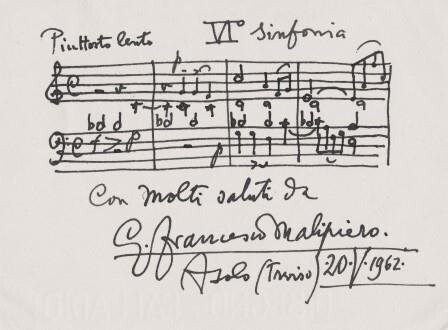 Piuttosto lento VIº Sinfonia
p
f > p
p
Con molti saluti da
G. Francesco Malipiero.
Asolo (Treviso) 20.V.1962.